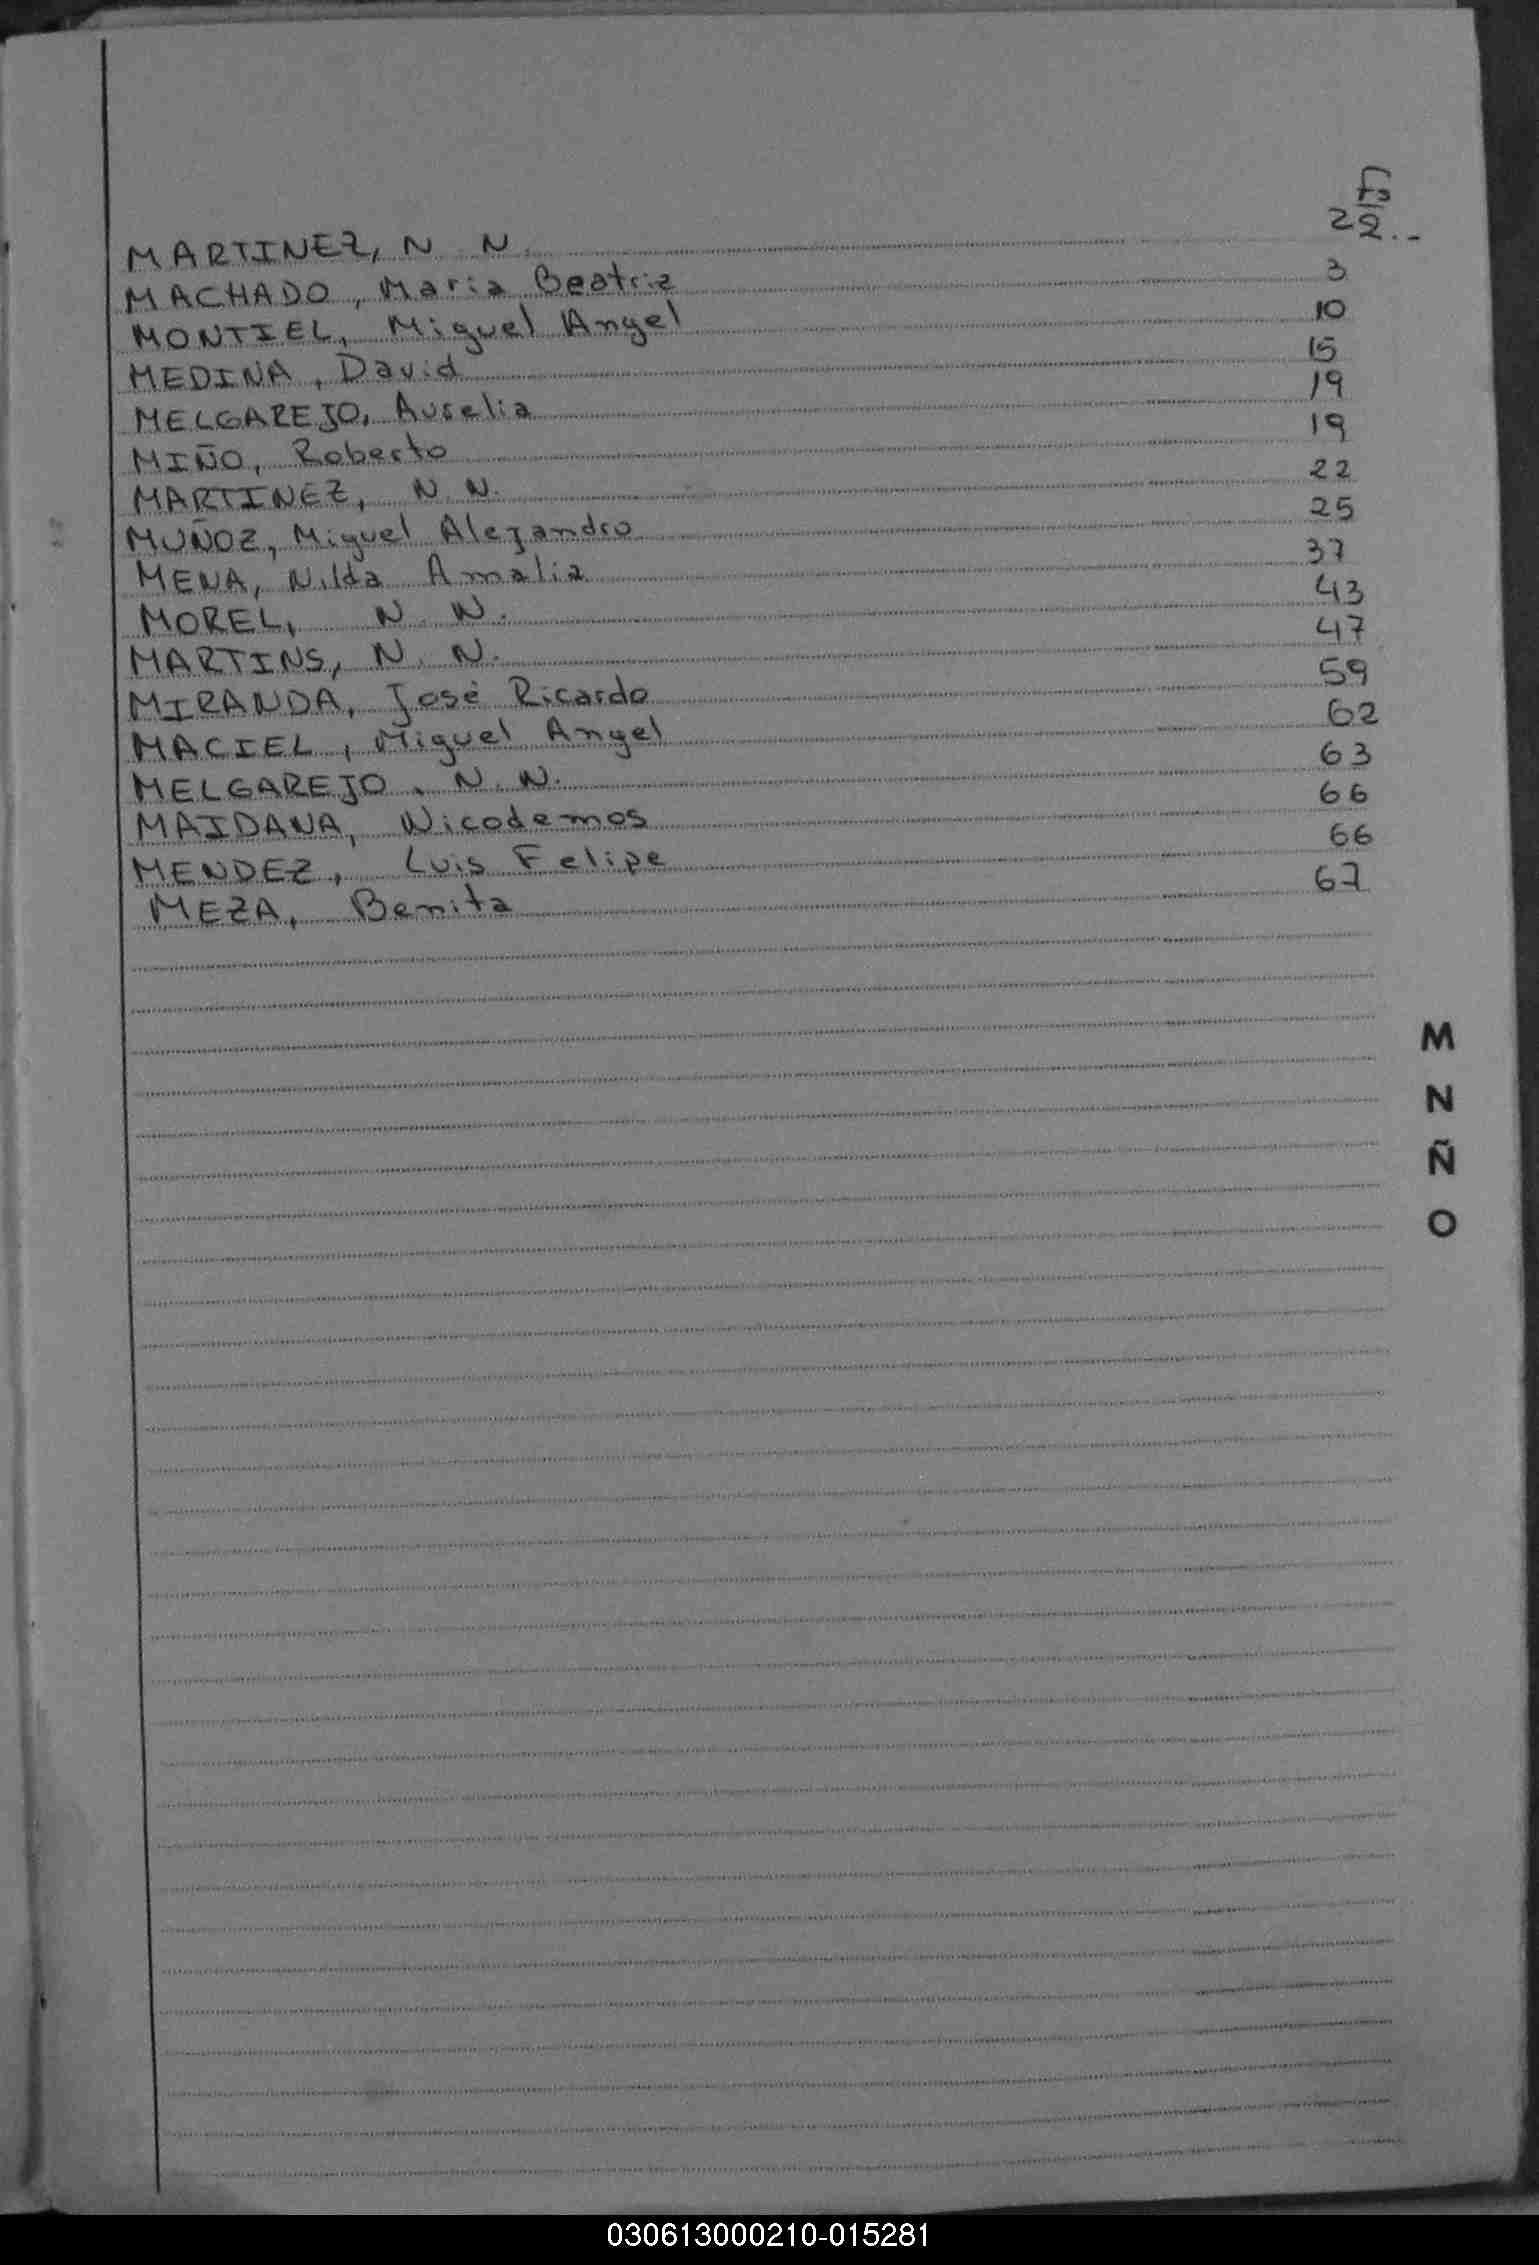 Fs
MARTINEZ, N. N. 22..
MACHADO, Maria Beatriz 3
MONTIEL, Miguel Angel 10
MEDINA, David 15
MELGAREJO, Aurelia 19
MIÑO, Roberto 19
MARTINEZ, N. N. 22
MUÑOZ, Miguel Alejandro 25
MENA, Nilda Amalia 37
MOREL, N. N. 43
MARTINS, N. N. 47
MIRANDA, José Ricardo 59
MACIEL, Miguel Angel 62
MELGAREJO, N. N. 63
MAIDANA, Nicodemos 66
MENDEZ, Luis Felipe 66
MEZA, Benita 67
M
N
Ñ
O
030613000210-015281